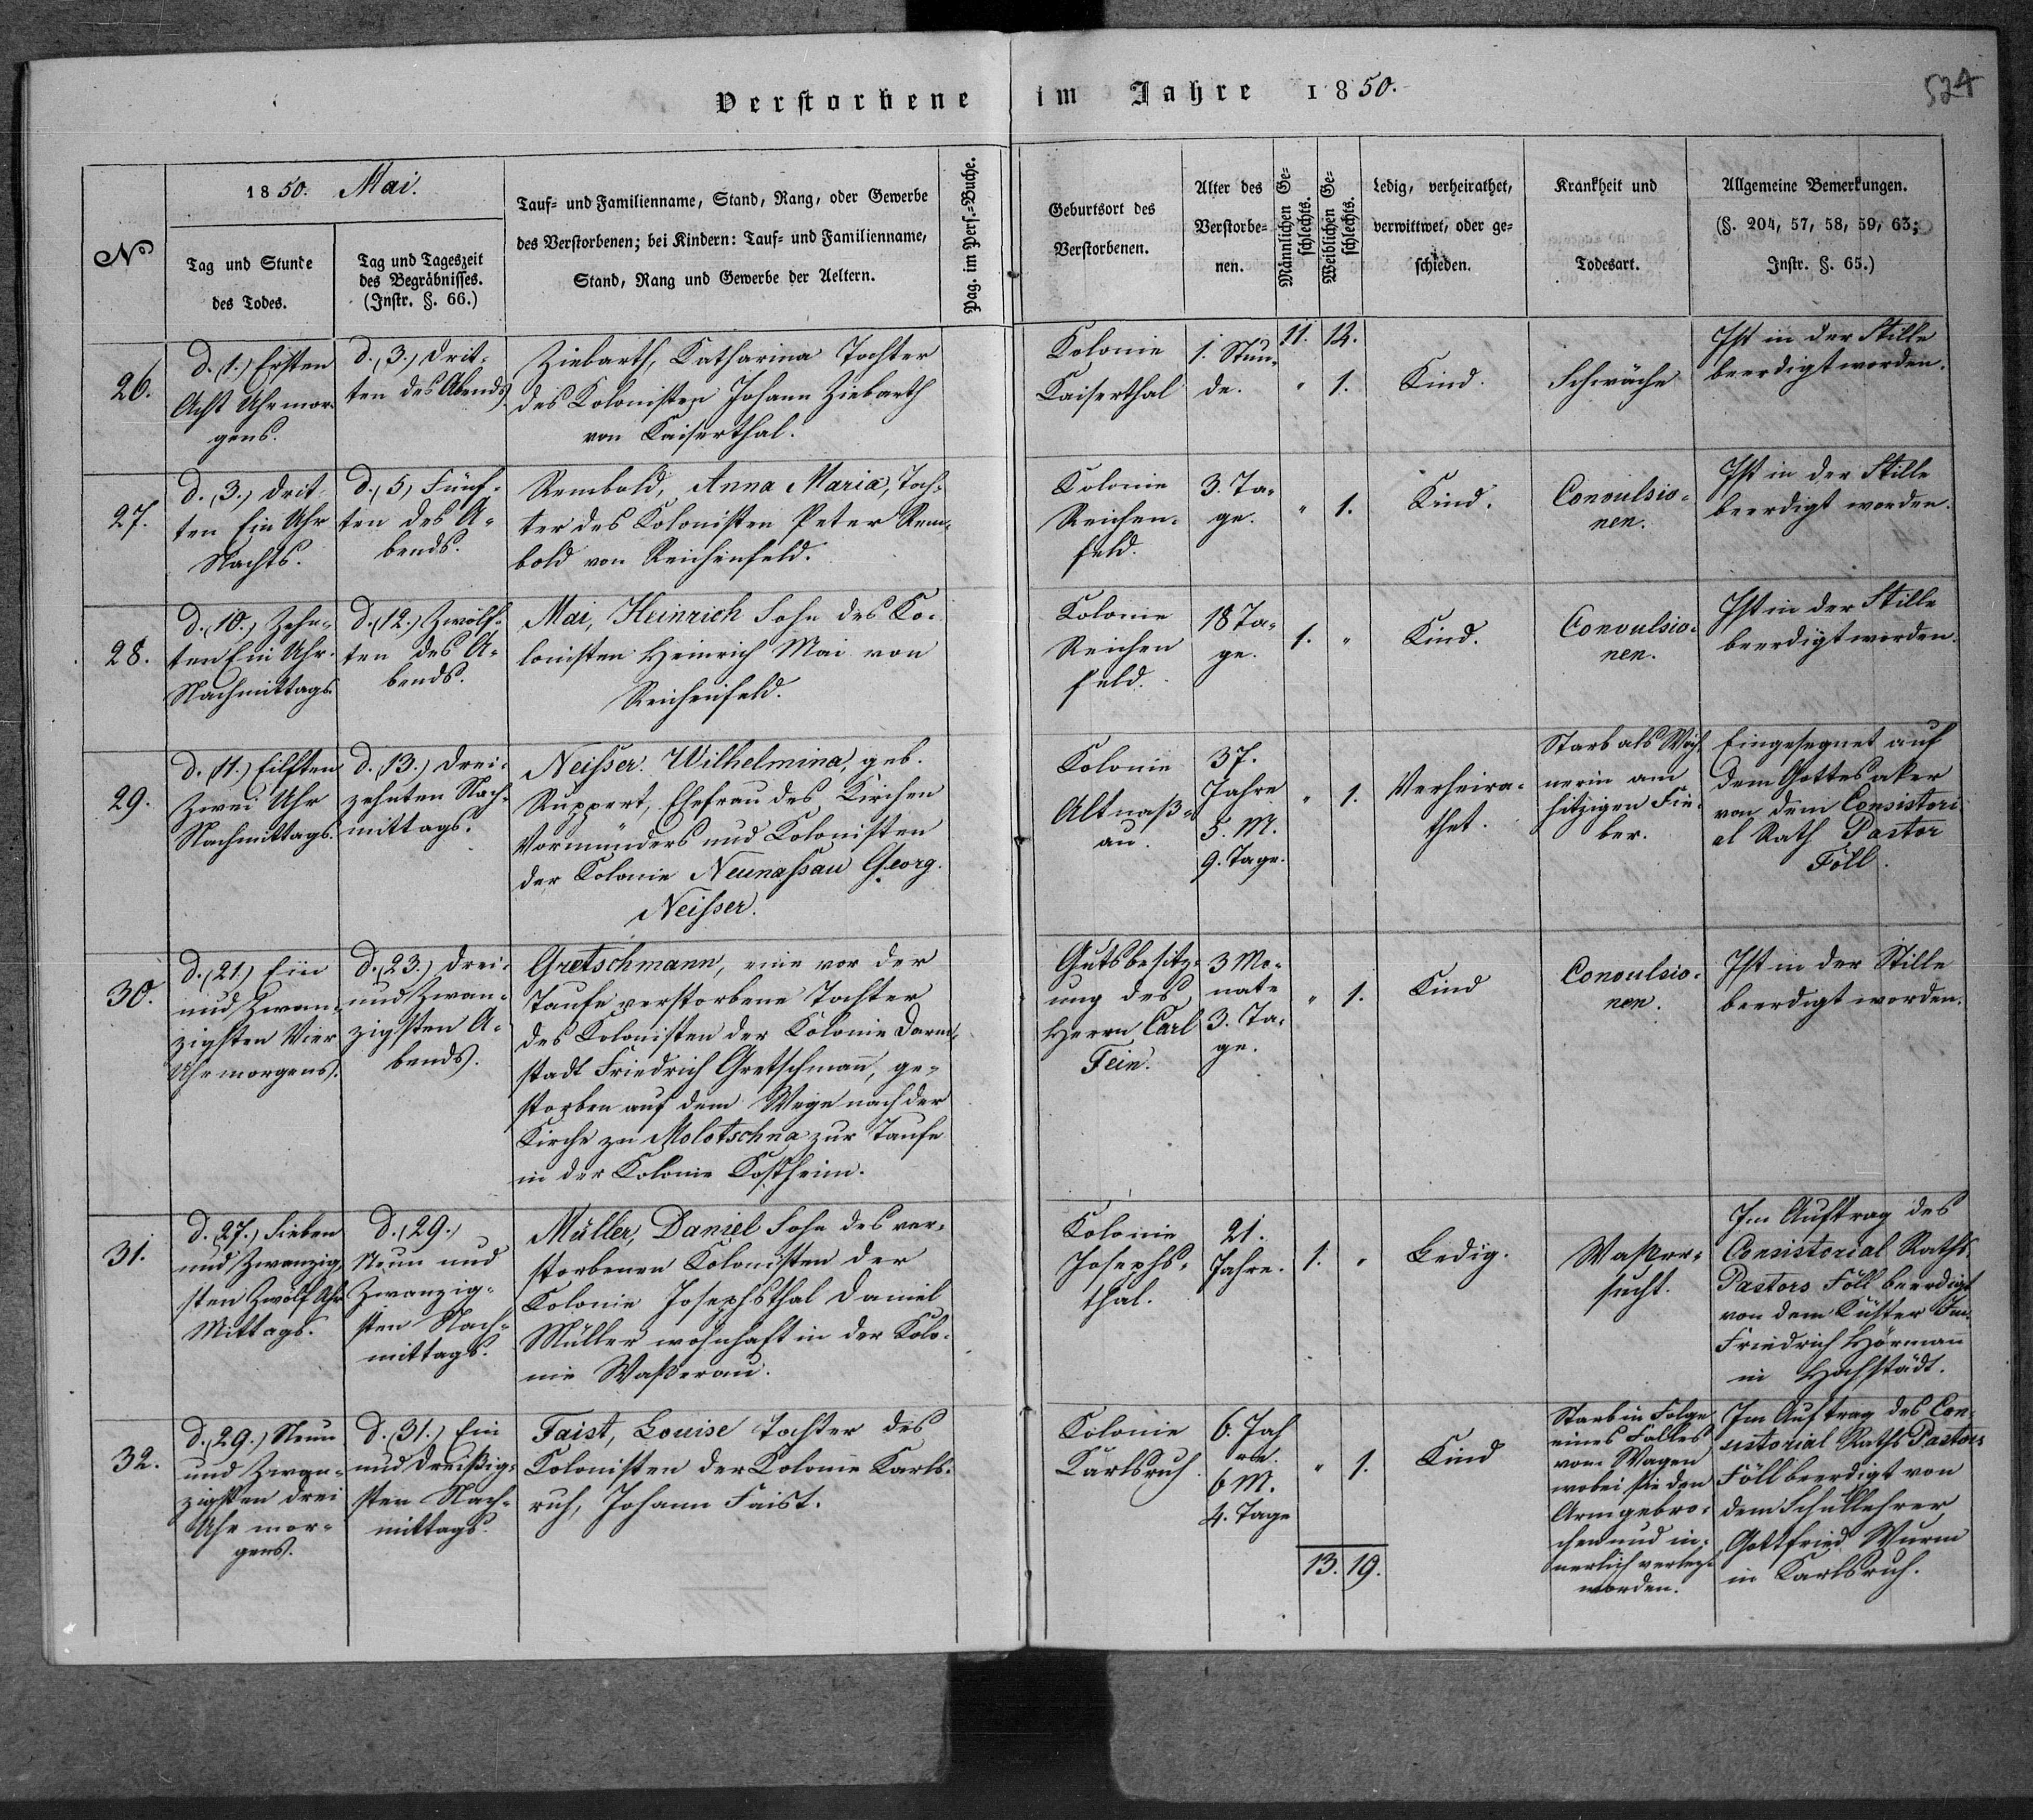 Verstorbene im Jahre 1850.
524
No
1850. Mai.
Tag und Stunde
des Todes.
Tag und Tageszeit
des Begräbnisses.
(Instr. §. 66.)
Tauf= und Familienname, Stand, Rang, oder Gewerbe
des Verstorbenen; bei Kindern: Tauf= und Familienname,
Stand, Rang und Gewerbe der Aeltern.
Pag. im Pers.=Buche.
Geburtsort des
Verstorbenen.
Alter des
Verstorbe-
nen.
Männlichen Ge-
schlechts.
Weiblichen Ge-
schlechts.
Ledig, verheirathet,
verwittwet, oder ge-
schieden.
Krankheit und
Todesart.
Allgemeine Bemerkungen.
(§. 204, 57, 58, 59, 63;
Instr. §. 65.)
26.
d. (1.) Ersten
Acht Uhr mor-
gens.
d. (3.) Drit-
ten des Abends
Ziebarth, Katharina Tochter
des Kolonisten Johann Ziebarth
von Kaiserthal.
Kolonie
Kaiserthal
1. Stun-
de.
11. 12.
" 1.
Kind.
Schwäche
Ist in der Stille
beerdigt worden.
27.
d. (3.) Drit-
ten Ein Uhr
Nachts.
d. (5) Fünf-
ten des A-
bends.
Rembold, Anna Maria, Toch-
ter des Kolonisten Peter Rem-
bold von Reichenfeld.
Kolonie
Reichen-
feld.
3. Ta-
ge.
" 1.
Kind.
Convulsio-
nen.
Ist in der Stille
beerdigt worden.
28.
d. (10.) Zehn-
ten Ein Uhr
Nachmittags
d. (12.) Zwölf-
ten des A-
bends.
Mai, Heinrich Sohn des Ko-
lonisten Heinrich Mai von
Reichenfeld.
Kolonie
Reichen
feld.
18 Ta-
ge.
1. "
Kind.
Convulsio-
nen.
Ist in der Stille
beerdigt worden.
29.
d. (11.) Eilften
Zwei Uhr
Nachmittags.
d. (13.) Drei-
zehnten Nach-
mittags.
Neisser. Wilhelmina, geb.
Ruppert, Ehefrau des Kirchen
Vormünders und Kolonisten
der Kolonie Neunassau Georg
Neisser.
Kolonie
Altnaß-
au.
37.
Jahre
5. M.
9. Tage.
" 1.
Verheira-
thet.
Starb als Wöch
nerin am
hitzigen Fie-
ber.
Eingesegnet auf
dem Gottesaker
von dem Consistori
al Rath Pastor
Föll.
30.
d. (21.) Ein
und Zwan-
zigsten Vier
Uhr morgens.
d. (23.) Drei-
und Zwan-
zigsten A-
bends.
Gretschmann, eine vor der
Taufe verstorbene Tochter
des Kolonisten der Kolonie Darm-
stadt Friedrich Gretschmann, ge-
storben auf dem Wege nach der
Kirche zu Molotschna zur Taufe
in der Kolonie Kostheim.
Gutsbesitz-
ung des
Herrn Carl
Fein.
3 Mo-
nate
3. Ta-
ge.
" 1.
Kind
Convulsio-
nen.
Ist in der Stille
beerdigt worden.
31.
d. (27.) Sieben
und Zwanzig
sten Zwölf Uhr
Mittags.
d. (29.)
Neun und
Zwanzig-
sten Nach-
mittags.
Müller, Daniel Sohn des ver-
storbenen Kolonisten der
Kolonie Josephsthal Daniel
Müller wohnhaft in der Kolo-
nie Waßerau.
Kolonie
Josephs-
thal.
21.
Jahre.
1. "
Ledig.
Waßer-
sucht.
Im Auftrag des
Consistorial Raths
Pastors Föll beerdigt
von dem Küster
Friedrich Hörmann
in Hochstädt.
32.
d. (29.) Neun
und Zwan-
zigsten Drei
Uhr mor-
gens.
d. (31.) Ein
und Dreißig-
sten Nach-
mittags.
Faist, Louise Tochter des
Kolonisten der Kolonie Karls-
ruh, Johann Faist.
Kolonie
Karlsruh.
6. Jah
re.
6 M.
4. Tage
" 1.
Kind
Starb in Folge
eines Falles
vom Wagen
wobei sie den
Arm gebro-
chen und in-
nerlich verlezt
worden.
Im Auftrag des Con-
sistorial Raths Pastors
Föll beerdigt von
dem Schullehrer
Gottfried Wurm
in Karlsruh.
13. 19.